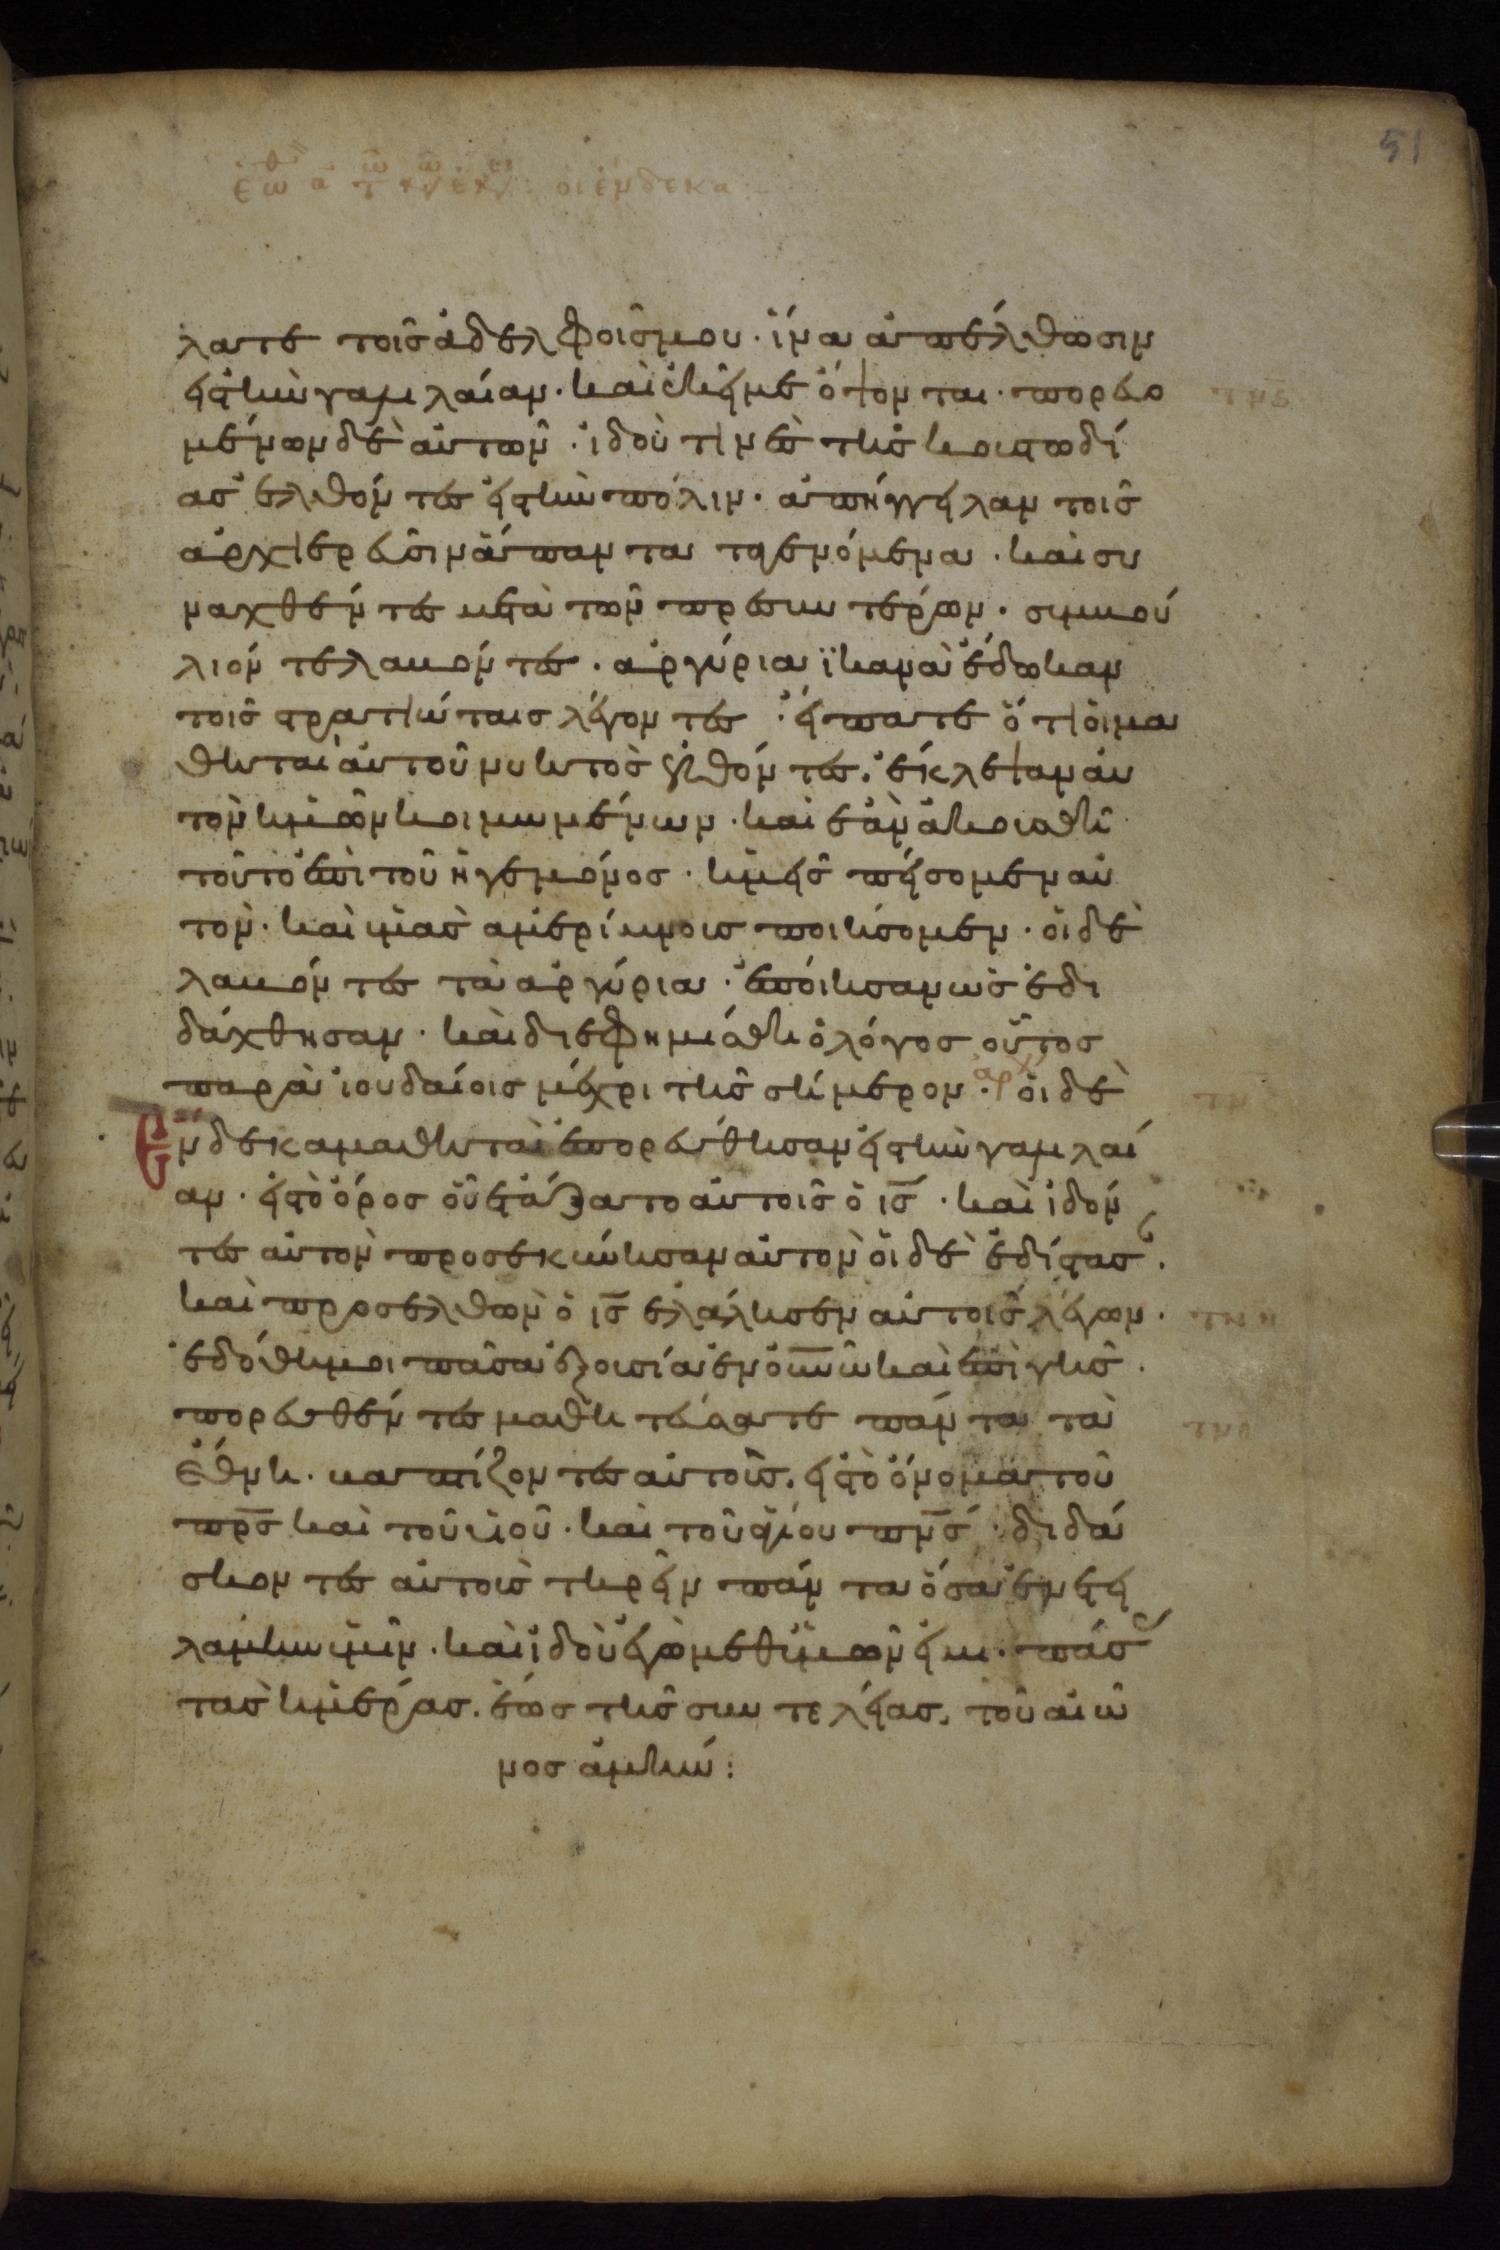 51
οἱ ἕνδεκα
λατε τοῖς ἀδελφοῖς μου · ἵνα ἀπέλθωσιν
εἰς τὴν γαλιλαίαν · καὶ ἐκεῖ με ὄψονται · πορευο
μένων δὲ αὐτῶν · ἰδού τινὲς τῆς κουστωδί
ας ἐλθόντες εἰς τὴν πόλιν · ἀπήγγειλαν τοῖς
ἀρχιερεῦσιν ἅπαντα τα γενόμενα · καὶ συ
ναχθέντες μετὰ τῶν πρεσβυτέρων · συμβού
λιόν τε λαβόντες · ἀργύρια ἱκανὰ ἔδωκαν
τοῖς στρατιώταις λέγοντες · εἴπατε ὅτι οἱ μα
θηταὶ αὐτοῦ νυκτὸς ἐλθόντες · ἔκλεψαν αὐ
τὸν ἡμῶν κοιμωμένων · καὶ ἐὰν ἀκουσθῆ
τοῦτο ἐπὶ τοῦ ἡγεμόνος · ἡμεῖς πείσομεν αὐ
τὸν · καὶ ὑμᾶς ἀμερίμνους ποιήσομεν · οἱ δὲ
λαβόντες τὰ ἀργύρια · ἐποίησαν ὡς ἐδι
δάχθησαν · καὶ διεφημίσθη ὁ λόγος οὗτος
παρὰ ἰουδαίοις μέχρι τῆς σήμερον · ἀρχ οἱ δὲ
ἕνδεκα μαθηταὶ ἐπορεύθησαν εἰς τὴν γαλιλαί
αν · εἰς τὸ ὄρος οὗ ἐτάξατο αὐτοῖς ὁ ις · καὶ ἰδόν
τες αὐτὸν προσεκύνησαν αὐτὸν οἱ δὲ ἐδίστασ ·
καὶ προσελθὼν ὁ ις ἐλάλησεν αὐτοῖς λέγων ·
ἐδόθη μοι πᾶσα ἐξουσία ἐν οὐνῶ καὶ ἐπὶ γῆς ·
πορευθέντες μαθητεύσατε πάντα τὰ
ἔθνη · βαπτίζοντες αὐτοὺς · εἰς τὸ ὄνομα τοῦ
πρς καὶ τοῦ υἱοῦ · καὶ τοῦ ἁγίου πνς · διδά
σκοντες αὐτοὺς τηρεῖν πάντα ὅσα ἐνετει
λάμην ὑμῖν · καὶ ἰδοὺ ἐγὼ μεθ ὑμῶν εἰμι · πάσ
τὰς ἡμέρας · ἕως τῆς συντελείας · τοῦ αἰῶ
νος ἀμήν :